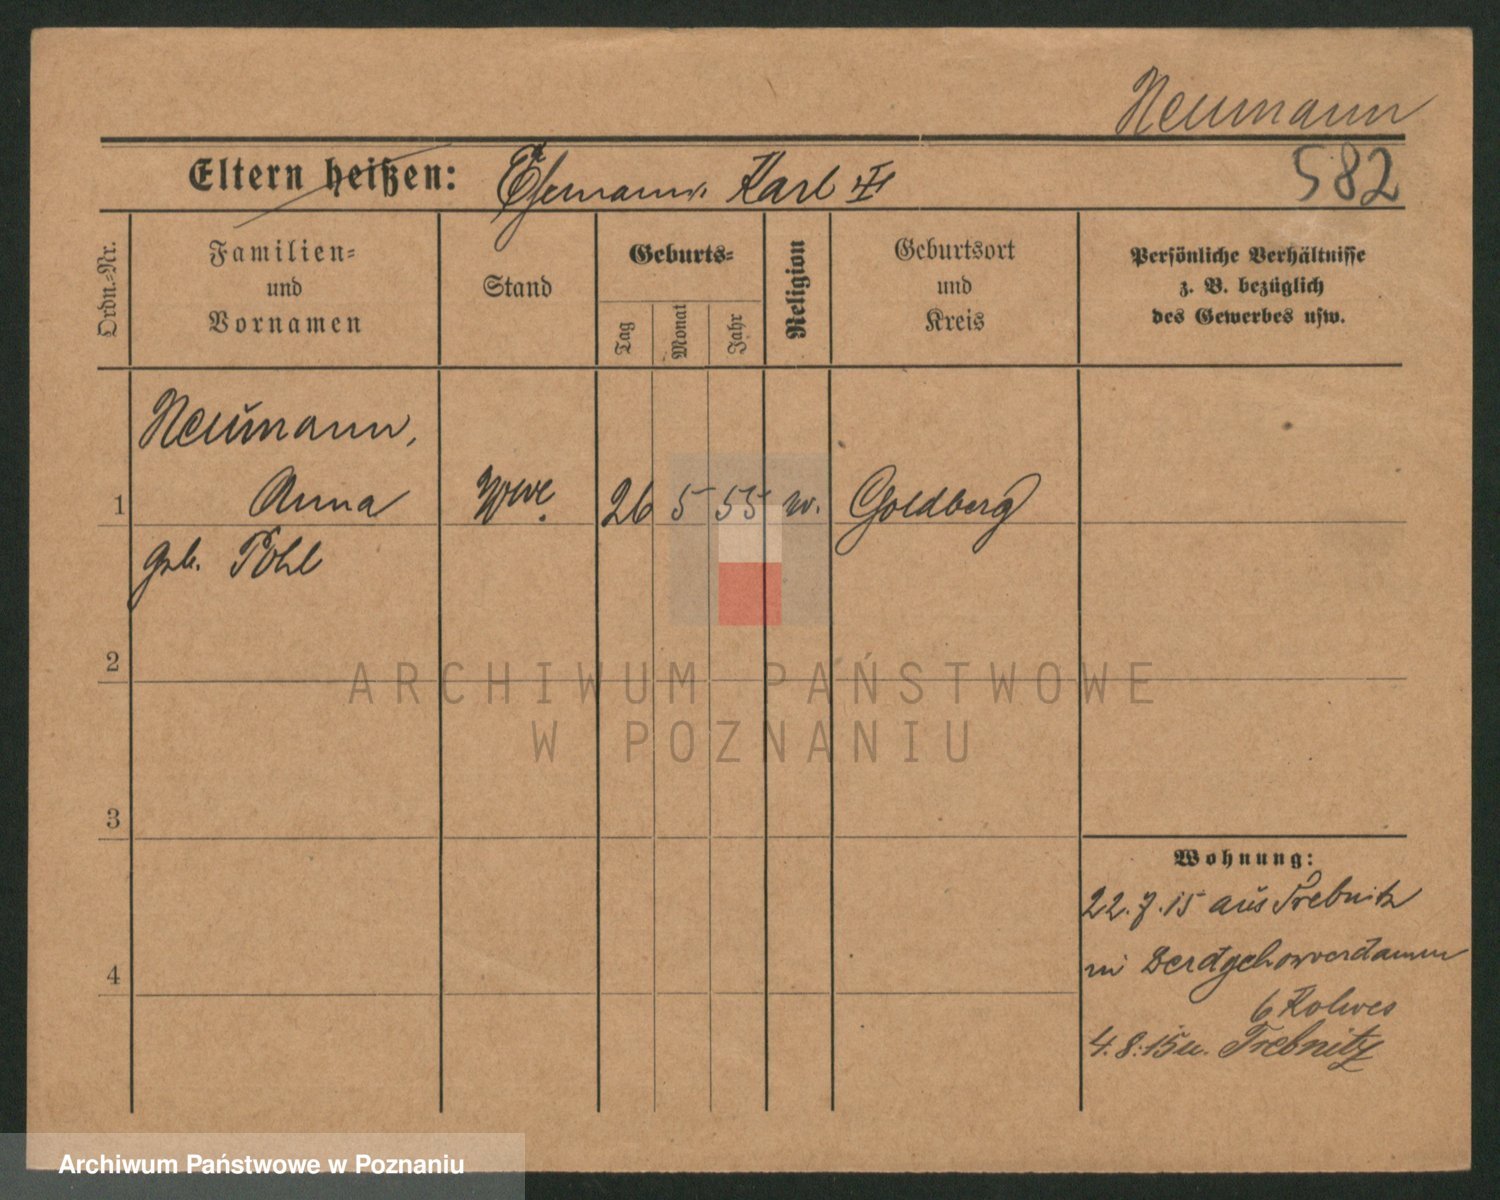 Neumann
582
Eltern heißen: Ehemann Karl
Ordn.-Nr.
Familien-
und
Vornamen
Stand
Geburts-
Tag
Monat
Jahr
Religion
Geburtsort
und
Kreis
Persönliche Verhältnisse
z. B. bezüglich
des Gewerbes usw.
Neumann,
1 Anna Wwe. 26 5 55 w. Goldberg
geb. Pohl
2
ARCHIWUM PAŃSTWOWE
W POZNANIU
3
Wohnung:
22.7.15 aus Trebnitz
4
b Kolwes
4.8.15 n. Trebnitz
Archiwum Państwowe w Poznaniu